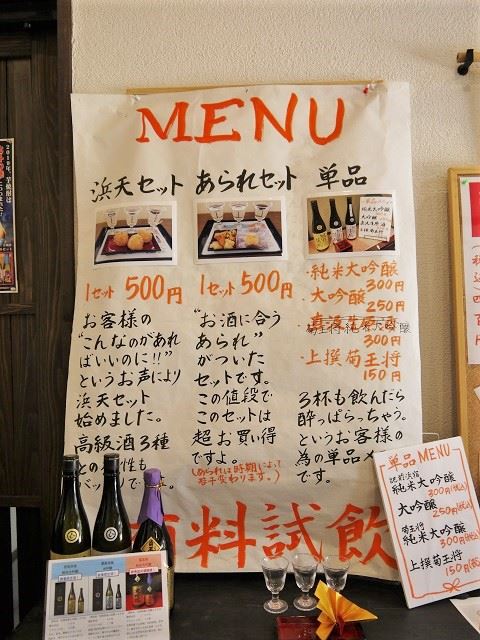 MENU
浜天セット
1セット 500円
お客様の
"こんなのがあれ
ばいいのに!!"
というお声により
浜天セット
始めました。
高級酒3種
あられセット
1セット 500円
"お酒に合う
あられ"
がついた
セットです。
この値段で
このセットは
超お買い得
ですよ。
(あられは時期によって
若干変わります。)
単品
・純米大吟醸
300円
・大吟醸
250円
菊王将 純米大吟醸
300円
・上撰菊王将
150円
3杯も飲んだら
酔っぱらっちゃう。
というお客様の
為の単品メ
です。
料試飲
単品MENU
肥前浜宿
純米大吟醸
300円(税込)
大吟醸
250円(税込)
菊王将
純米大吟醸
300円(税込)
上撰菊王将
150円(税込)